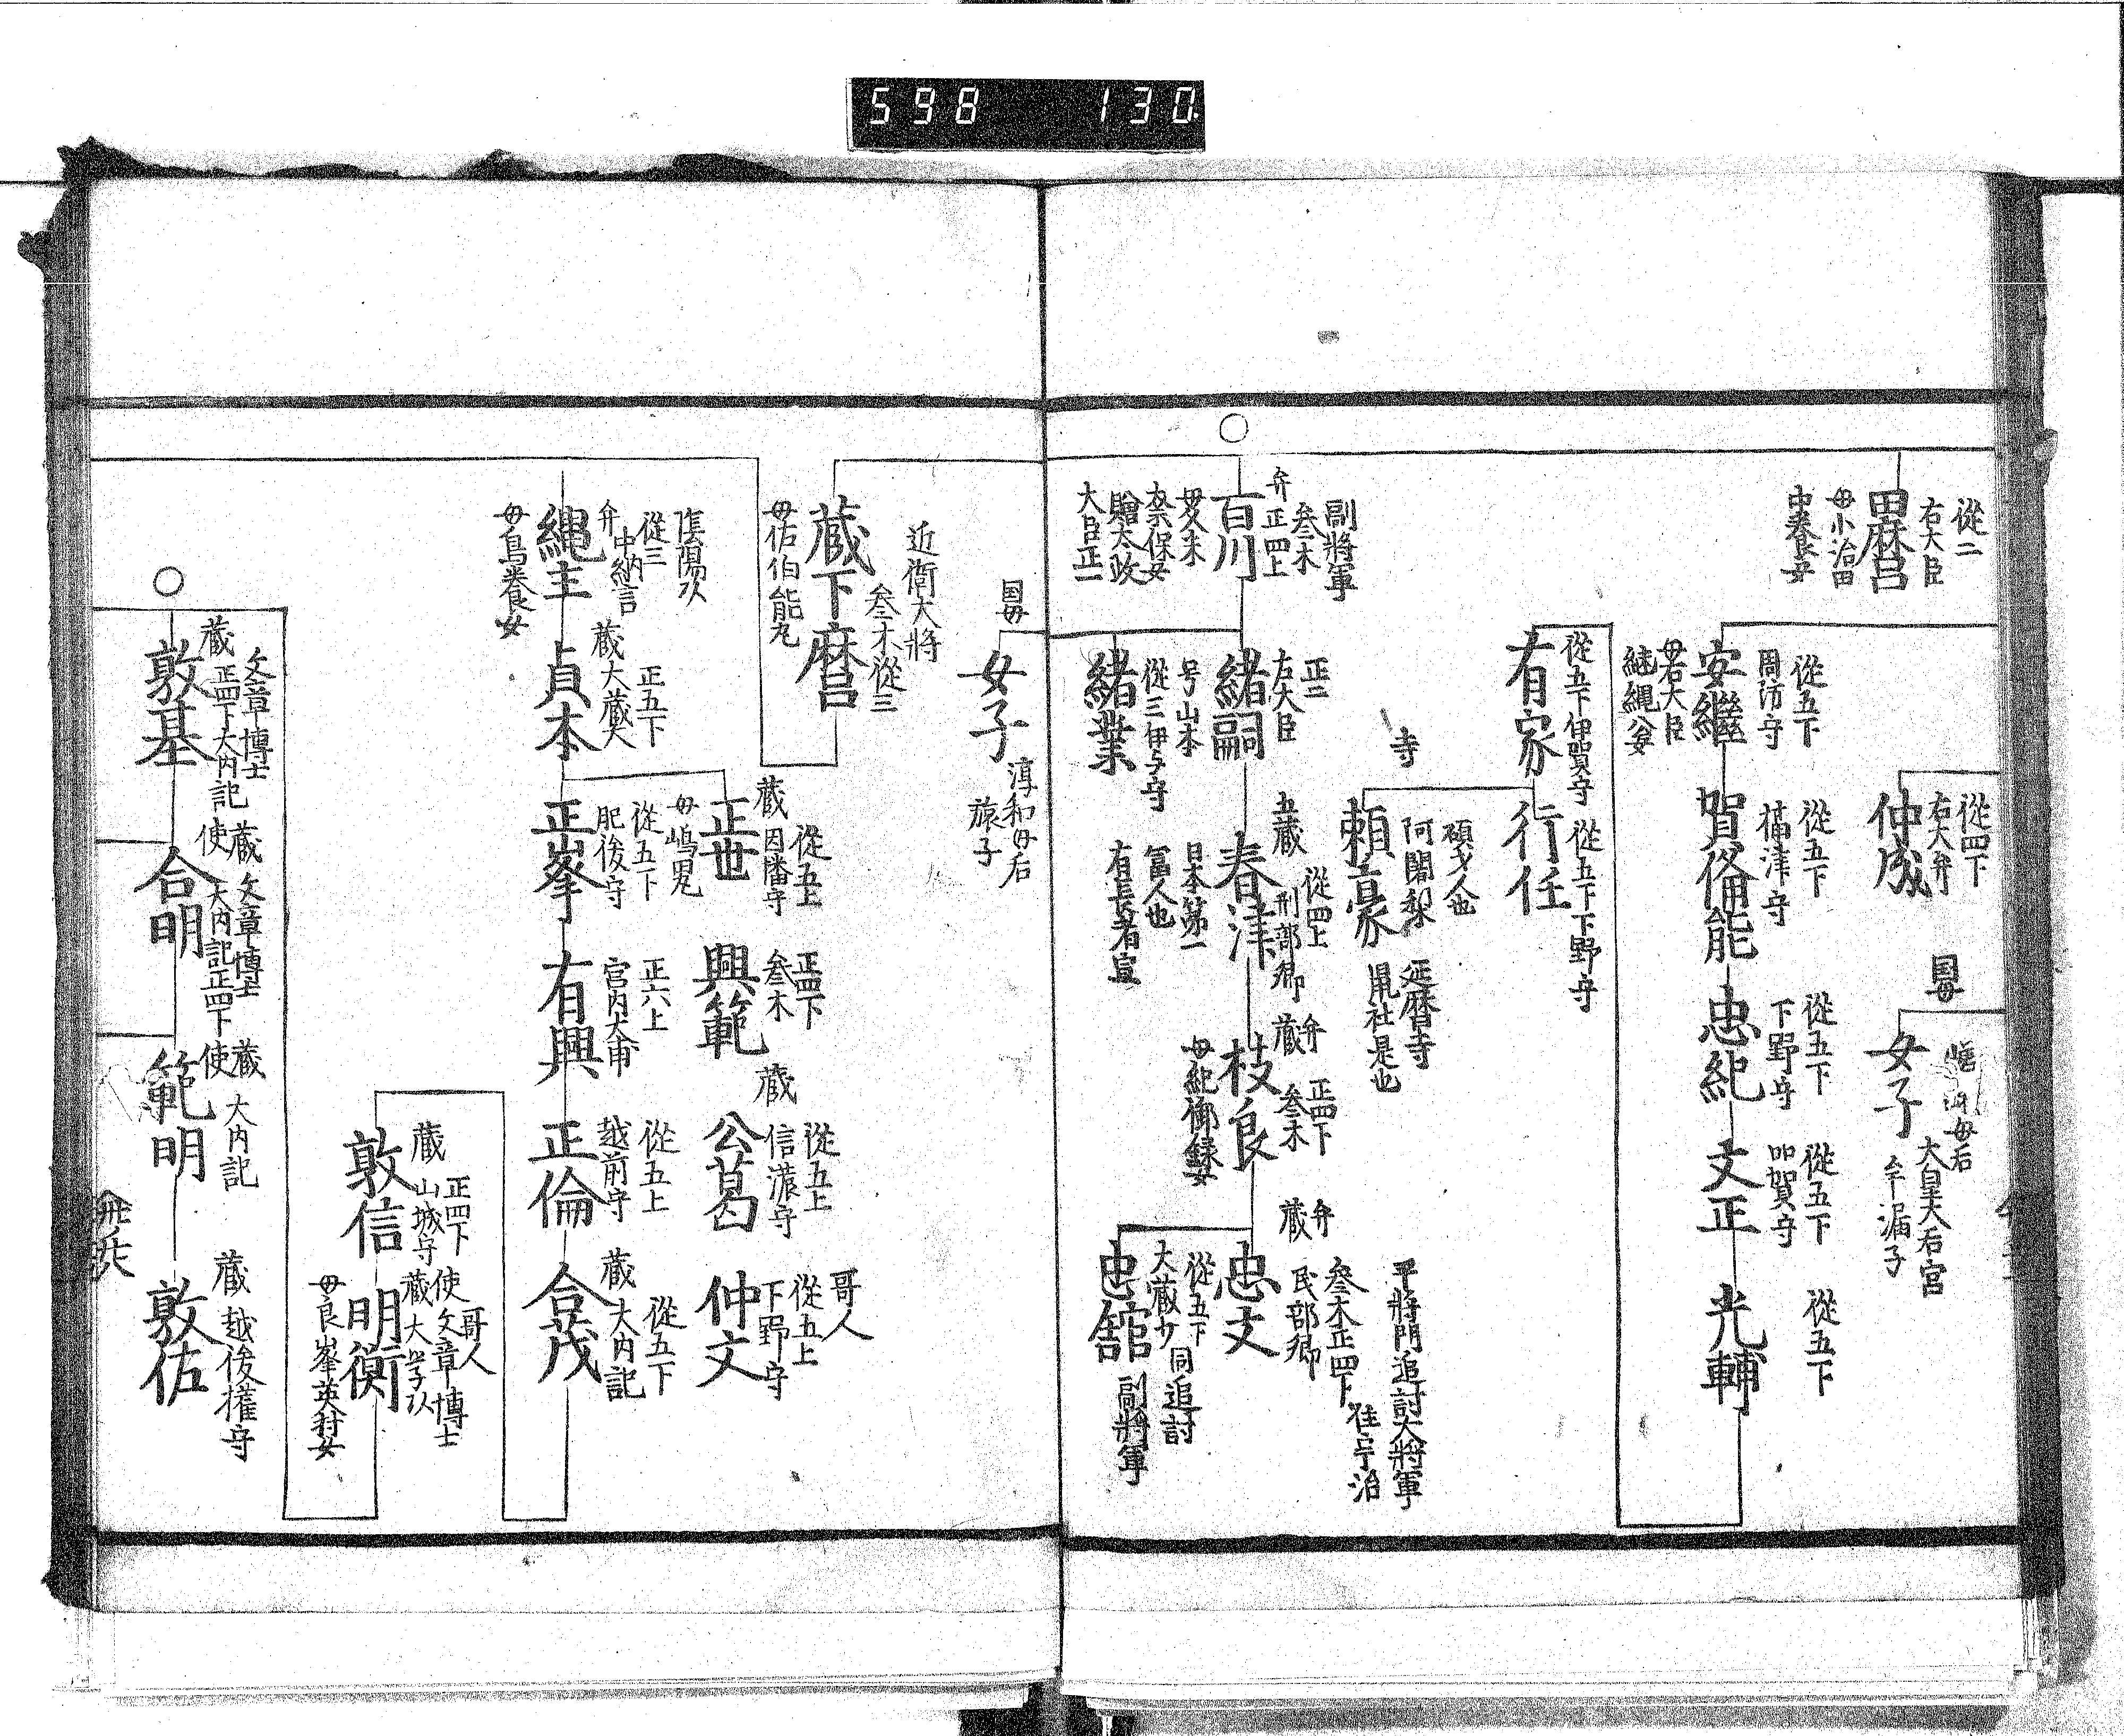 598 130
從二
右大臣
田麿
母小治田
從四下
右大弁
仲成
国母
女子
母后
大皇大后宮
牟漏子
從五下
周防守
安繼
母右大臣
継縄公女
從五下
播津守
賀俻能
從五下
下野守
忠紀
從五下
加賀守
文正
從五下
光輔
從五下伊賀守
有家
從五下下野守
行任
寺
碩才人也
阿闍梨
頼豪
延暦寺
鼠社是也
副將軍
叅木
正四上
弁
百川
母久米
奈保女
贈大政
大臣正一
正二
左大臣
緒嗣
号山本
從三伊与守
緒業
蔵
從四上
刑部卿
春津
日本第一
冨人也
有長者宣
弁
蔵
正四下
叅木
枝良
弁
蔵
平將門追討大將軍
叅木正四下
民部卿
住宇治
忠文
從五下
大蔵少
忠舘
同追討
副將軍
国母
女子
淳和母后
旅子
近衛大將
叅木從三
蔵下麿
母佐伯能丸
陰陽
從三
中納言
弁
縄主
母鳥養良女
蔵
正五下
大蔵大
貞本
蔵
從五上
因幡守
正世
母嶋男
正四下
叅木
興範
蔵
從五上
信濃守
公葛
哥人
從五上
下野守
仲文
從五下
肥後守
正峯
正六上
宮内大甫
有興
從五上
越前守
正倫
蔵
從五下
大内記
合茂
蔵
正四下
山城守
敦信
哥人
使文章博士
蔵大学
明衡
母良峯英材女
文章博士
蔵正四下大内記
敦基
蔵文章博士
使大内記正四下
合明
蔵
使
大内記
範明
蔵
越後權守
敦佐